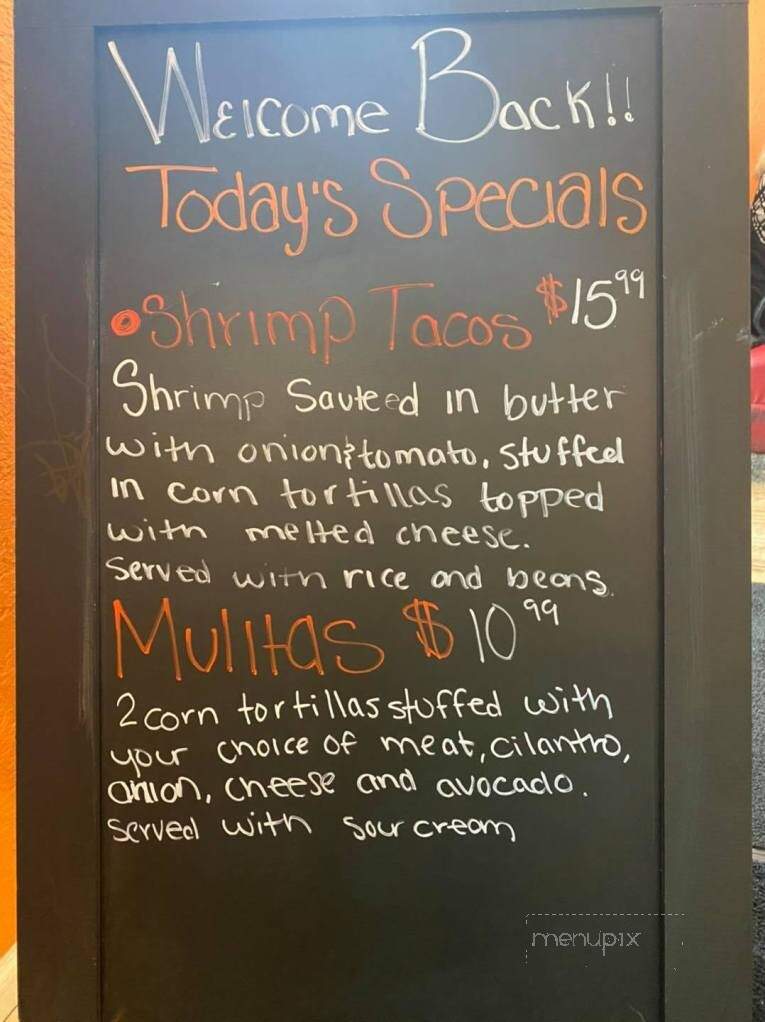 Welcome Back!!
Today's Specials
• Shrimp Tacos $15.99
Shrimp Sauteed in butter
with onion & tomato, stuffed
in corn tortillas topped
with melted cheese.
Served with rice and beans.
Mulitas $10.99
2 corn tortillas stuffed with
your choice of meat, cilantro,
onion, cheese and avocado.
Served with sour cream
menupix